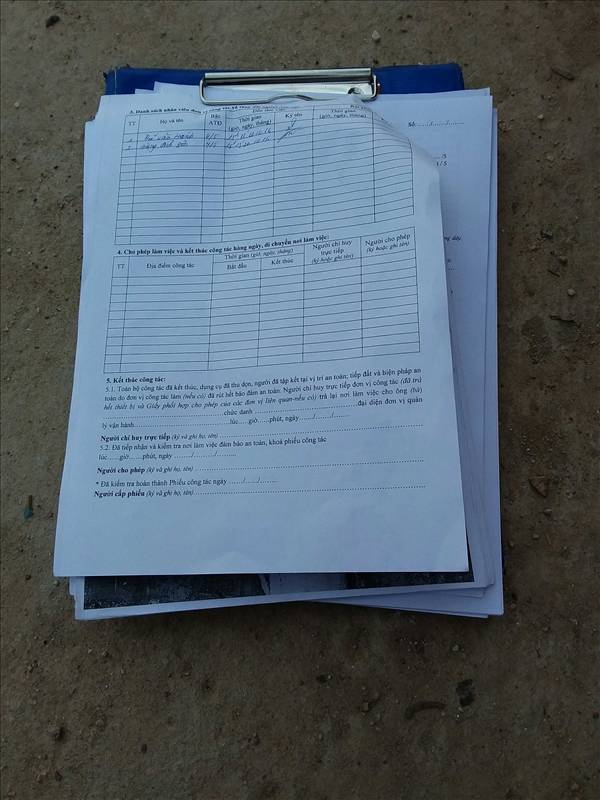 3. Danh sách nhân viên đơn vị công tác
TT
Họ và tên
Bậc ATĐ
Thời gian (giờ, ngày, tháng)
Ký tên
Thời gian (giờ, ngày, tháng)
Số
4/5
4/5
/5
1/5
4. Cho phép làm việc và kết thúc công tác hàng ngày, di chuyển nơi làm việc:
TT
Địa điểm công tác
Thời gian (giờ, ngày, tháng)
Bắt đầu
Kết thúc
Người chỉ huy trực tiếp (ký hoặc ghi tên)
Người cho phép (ký hoặc ghi tên)
5. Kết thúc công tác:
5.1. Toàn bộ công tác đã kết thúc, dụng cụ đã thu dọn, người đã tập kết tại vị trí an toàn; tiếp đất và biện pháp an
toàn do đơn vị công tác làm (nếu có) đã rút hết bảo đảm an toàn. Người chỉ huy trực tiếp đơn vị công tác (đã trả
hết thiết bị và Giấy phối hợp cho phép của các đơn vị liên quan-nếu có) trả lại nơi làm việc cho ông (bà)
chức danh ........ đại diện đơn vị quản
lý vận hành........lúc.....giờ.....phút, ngày....../....../......
Người chỉ huy trực tiếp (ký và ghi họ, tên)........
5.2. Đã tiếp nhận và kiểm tra nơi làm việc đảm bảo an toàn, khoá phiếu công tác
lúc......giờ......phút, ngày ....../....../......
Người cho phép (ký và ghi họ, tên)........
* Đã kiểm tra hoàn thành Phiếu công tác ngày ....../....../......
Người cấp phiếu (ký và ghi họ, tên)........